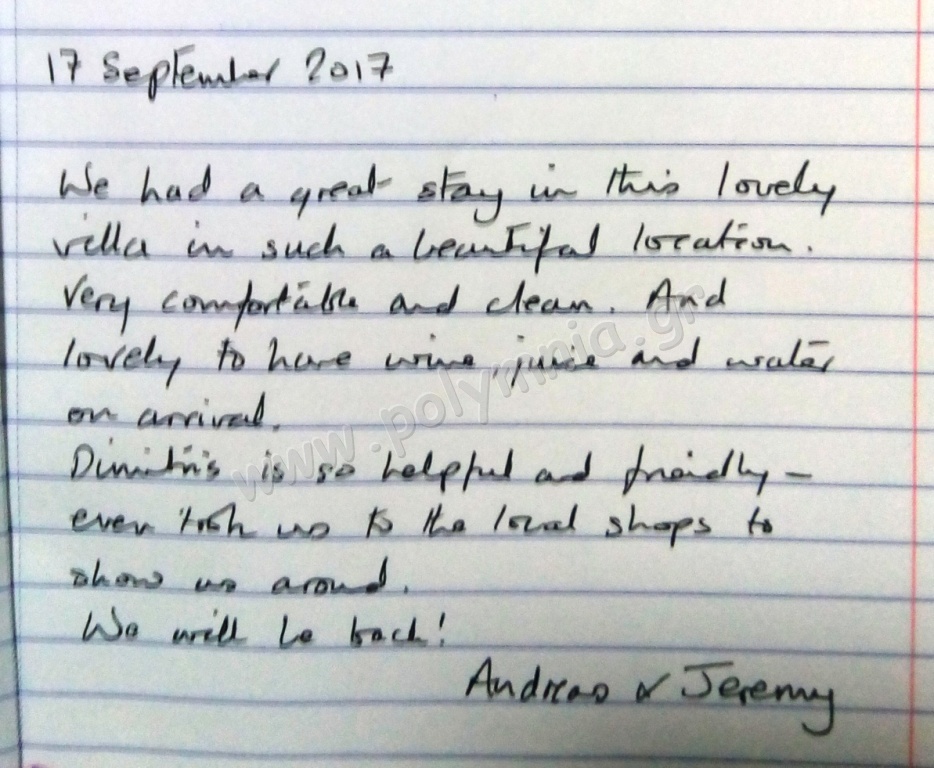 17 September 2017
We had a great stay in this lovely
villa in such a beautiful location.
Very comfortable and clean. And
lovely to have wine, juice and water
on arrival.
Dimitris is so helpful and friendly –
even took us to the local shops to
show us around.
We will be back!
Andreas & Jeremy
www.polymnia.gr